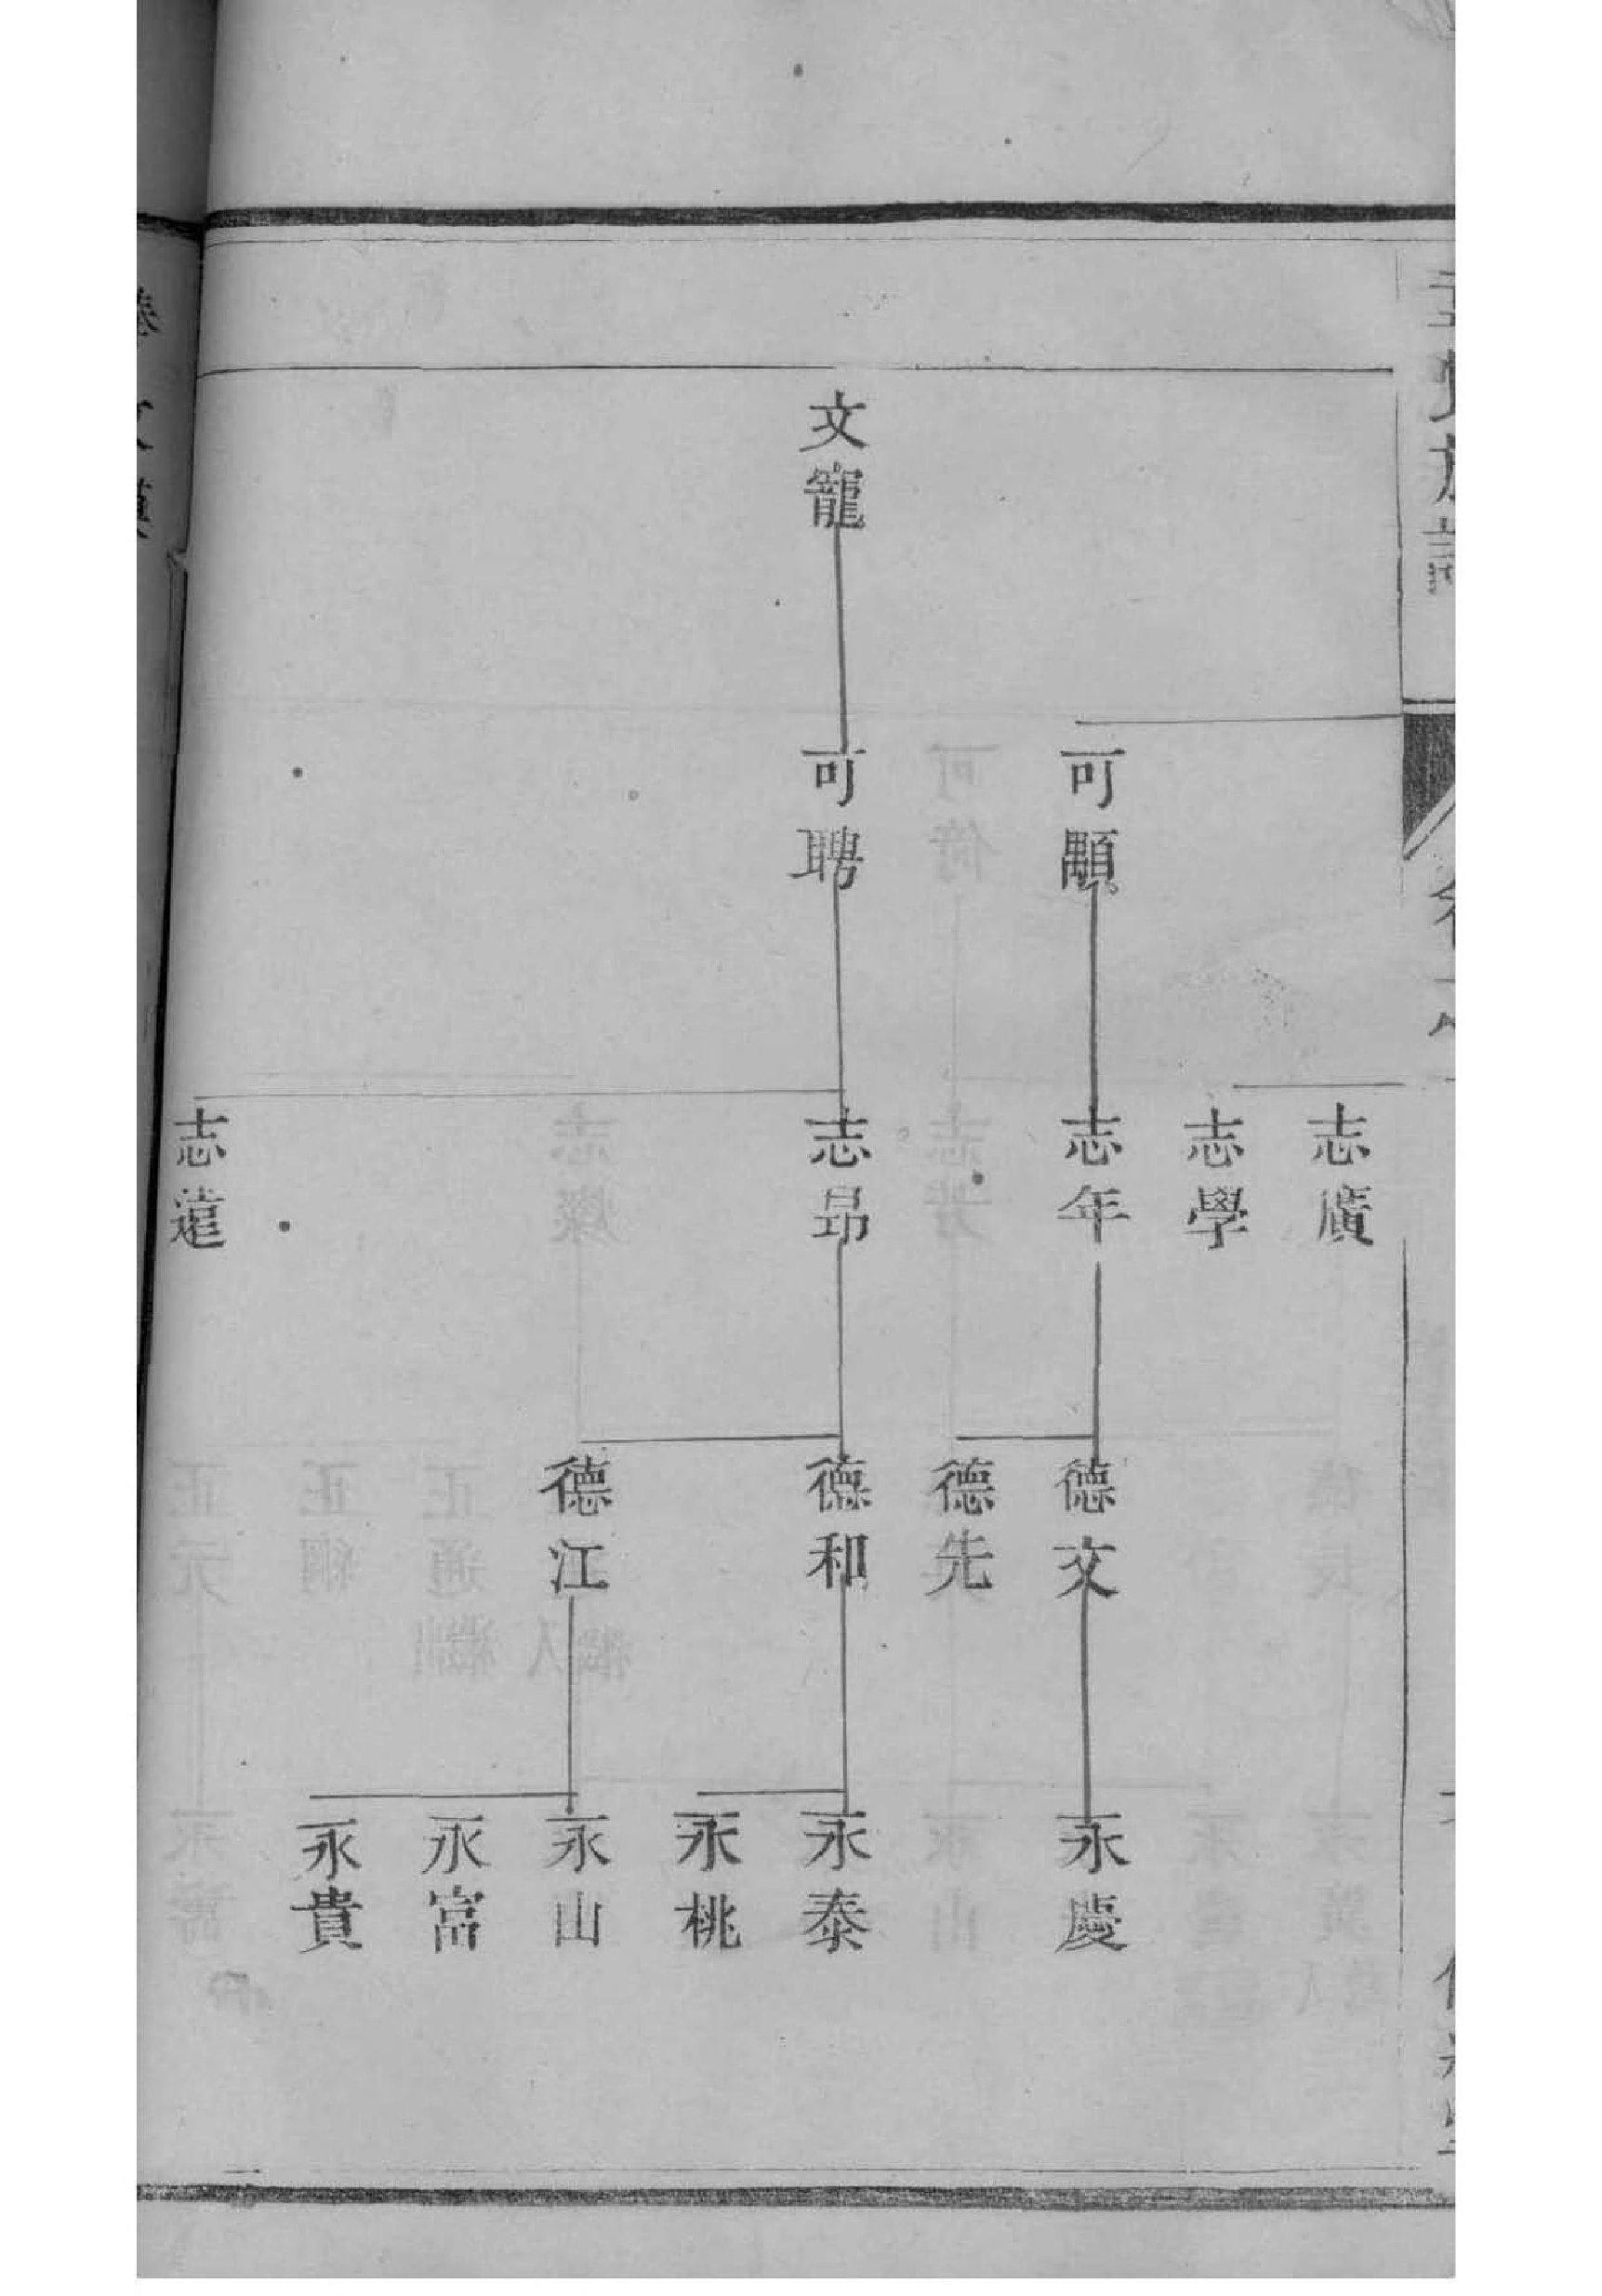 文寵
可顒
可聘
志廣
志學
志年
志昂
志遠
德文
德先
德和
德江
永慶
永泰
永桃
永山
永富
永貴